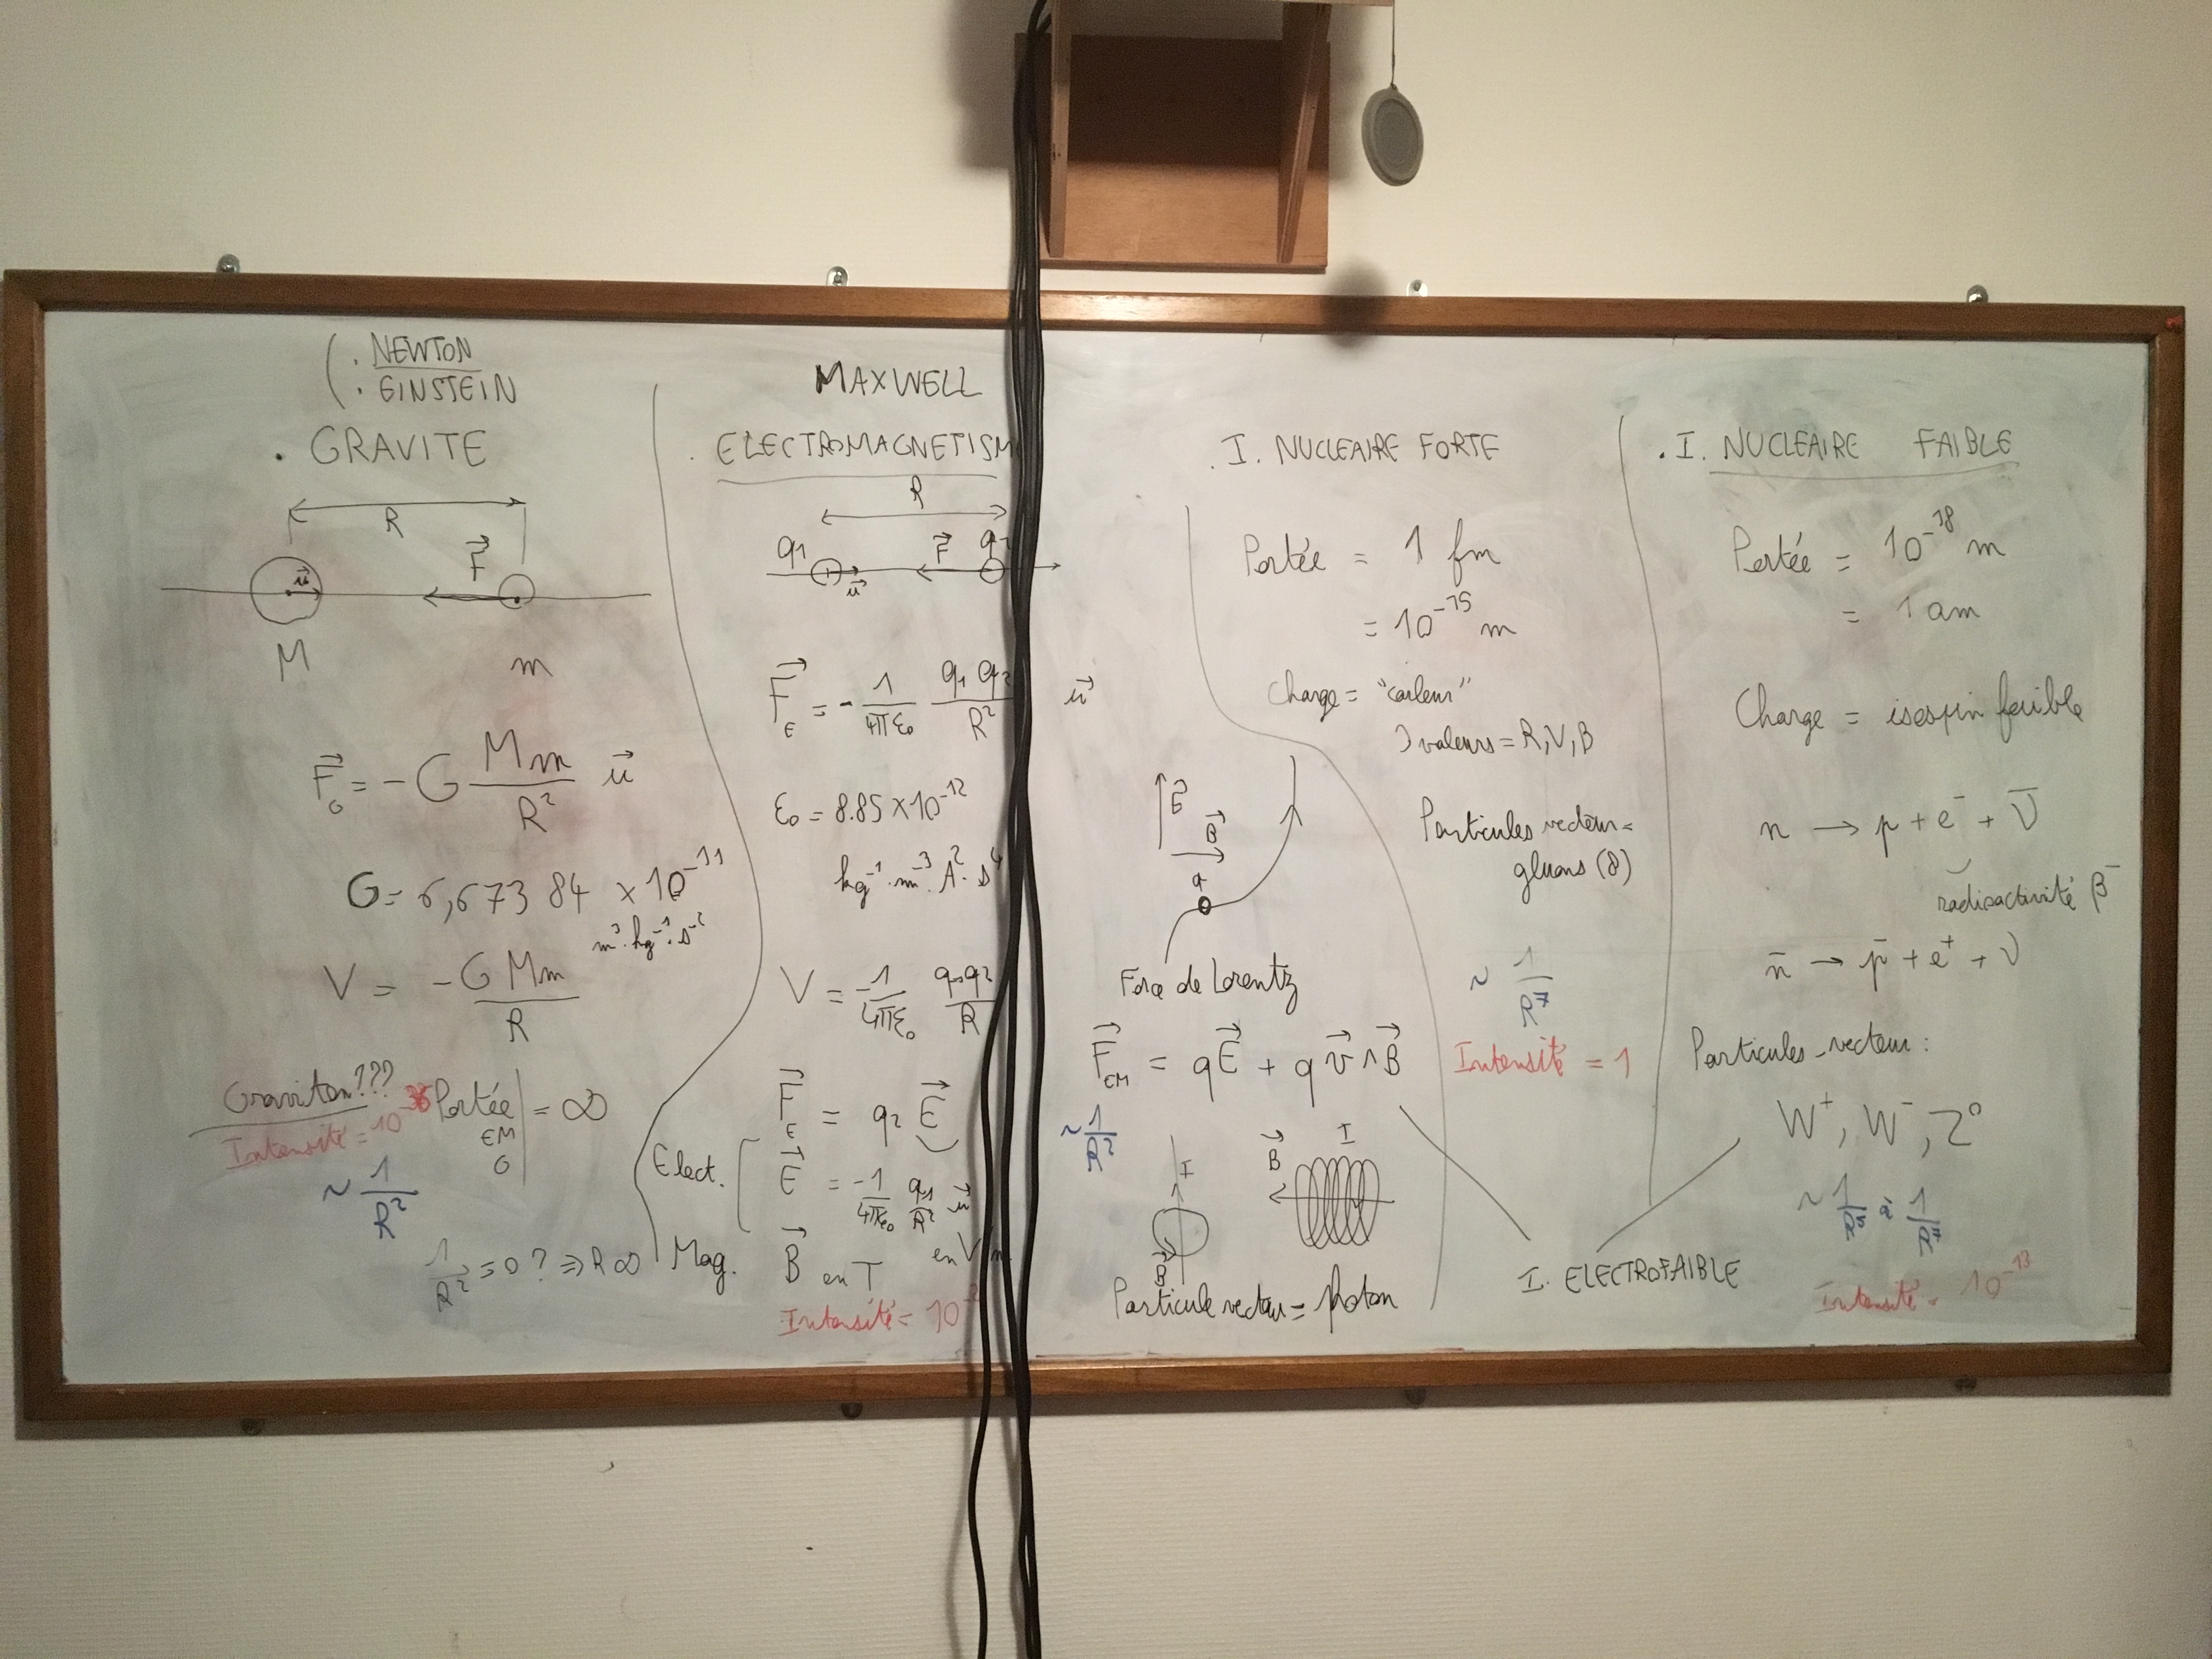 . NEWTON
. EINSTEIN
. GRAVITE
R
u⃗
F⃗
M
m
F⃗_G = -G Mm/R² u⃗
G = 6,67384 × 10⁻¹¹
m³·kg⁻¹·s⁻²
V = -G Mm/R
Graviton???
Intensité = 10
Portée EM G = ∞
~ 1/R²
1/R² = 0 ? ⇒ R ∞
MAXWELL
. ELECTROMAGNETISM
R
q₁ F⃗ q₂
u⃗
F⃗_E = - 1/4πε₀ q₁q₂/R² u⃗
ε₀ = 8.85 × 10⁻¹²
kg⁻¹·m⁻³·A²·s⁴
V = -1/4πε₀ q₁q₂/R
F⃗_E = q₂ E⃗
Elect.
E⃗ = -1/4πε₀ q₁/R² u⃗
en V m
Mag. B⃗ en T
Intensité = 10
E⃗
B⃗
q
Force de Lorentz
F⃗_EM = qE⃗ + q v⃗ ∧ B⃗
~ 1/R²
I
B⃗
B⃗ I
Particule vecteur = photon
. I. NUCLEAIRE FORTE
Portée = 1 fm
= 10⁻¹⁵ m
Charge = "couleur"
3 valeurs = R,V,B
Particules vecteur =
gluons (8)
~ 1/R⁷
Intensité = 1
. I. NUCLEAIRE FAIBLE
Portée = 10⁻¹⁸ m
= 1 am
Charge = isospin faible
n → p + e⁻ + ν̄
radioactivité β⁻
n̄ → p̄ + e⁺ + ν
Particules-vecteur :
W⁺, W⁻, Z⁰
~ 1/R⁵ à 1/R⁷
I. ELECTROFAIBLE
Intensité = 10⁻¹³